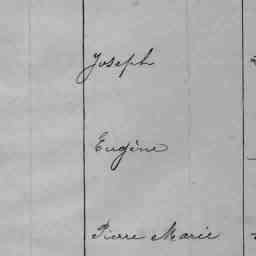 Joseph
Eugène
Pierre Marie